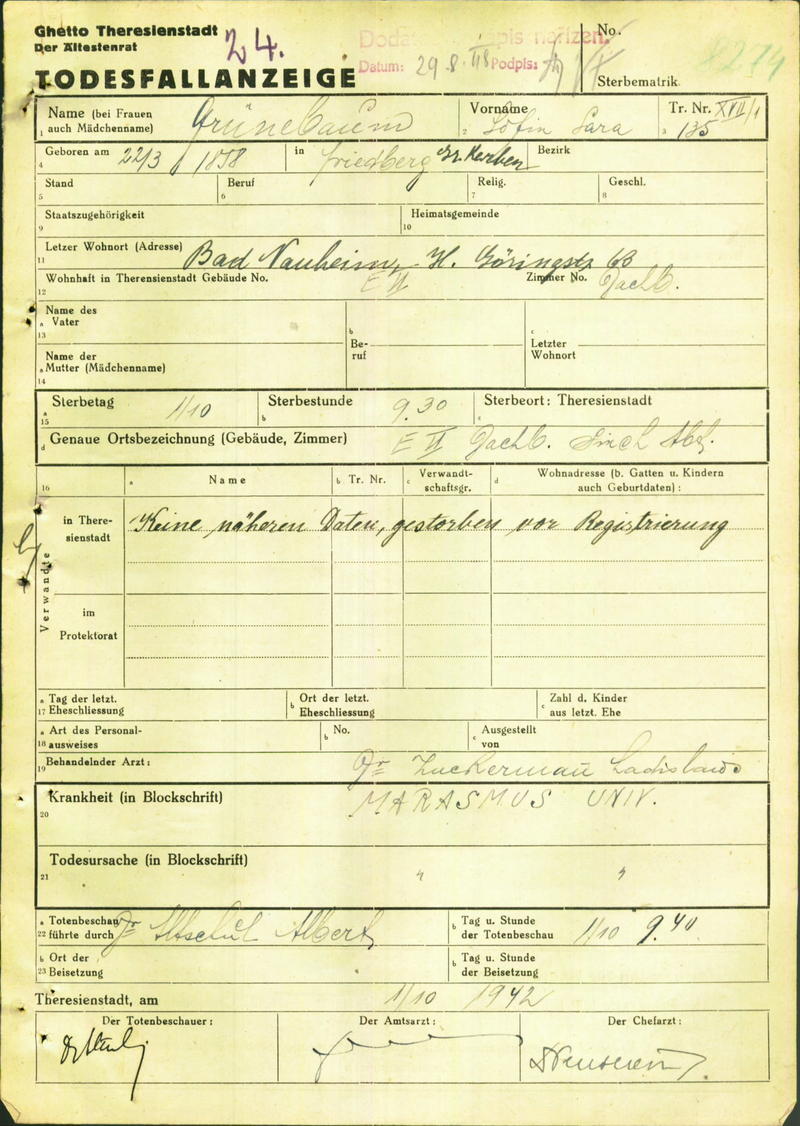 Ghetto Theresienstadt
Der Ältestenrat
24.
TODESFALLANZEIGE
Datum: 29. 8. 48 Podpis:
No.
Sterbematrik
Name (bei Frauen auch Mädchenname) Grünebaum
1
Vorname
2 Sara
Tr. Nr. XVII/1
3 135
Geboren am 22/3 1858 in Friedberg Bezirk
4
Stand Beruf Relig. Geschl.
5 6 7 8
Staatszugehörigkeit Heimatsgemeinde
9 10
Letzer Wohnort (Adresse) Bad Nauheim, H. Göringstr 63
11
Wohnhaft in Therensienstadt Gebäude No. E VI Zimmer No. Dachb.
12
Name des
a Vater
13
b Beruf
c Letzter Wohnort
Name der
a Mutter (Mädchenname)
14
a Sterbetag 1/10 Sterbestunde 9.30 Sterbeort: Theresienstadt
15 b c
d Genaue Ortsbezeichnung (Gebäude, Zimmer) E VI Dachb.
16 a Name b Tr. Nr. c Verwandtschaftsgr. d Wohnadresse (b. Gatten u. Kindern auch Geburtdaten):
Verwandte
in Theresienstadt
Keine näheren Daten, gestorben vor Registrierung
im
Protektorat
a Tag der letzt.
17 Eheschliessung
b Ort der letzt.
Eheschliessung
c Zahl d. Kinder
aus letzt. Ehe
a Art des Personal-
18 ausweises
b No.
c Ausgestellt
von
Behandelnder Arzt: Dr Zuckerman Ladislaus
19
Krankheit (in Blockschrift) MARASMUS UNIV.
20
Todesursache (in Blockschrift)
21 " "
a Totenbeschau
22 führte durch Dr Altschul Albert
b Tag u. Stunde
der Totenbeschau 1/10 9.40
b Ort der
23 Beisetzung
b Tag u. Stunde
der Beisetzung
Theresienstadt, am 1/10 1942
Der Totenbeschauer: Der Amtsarzt: Der Chefarzt: